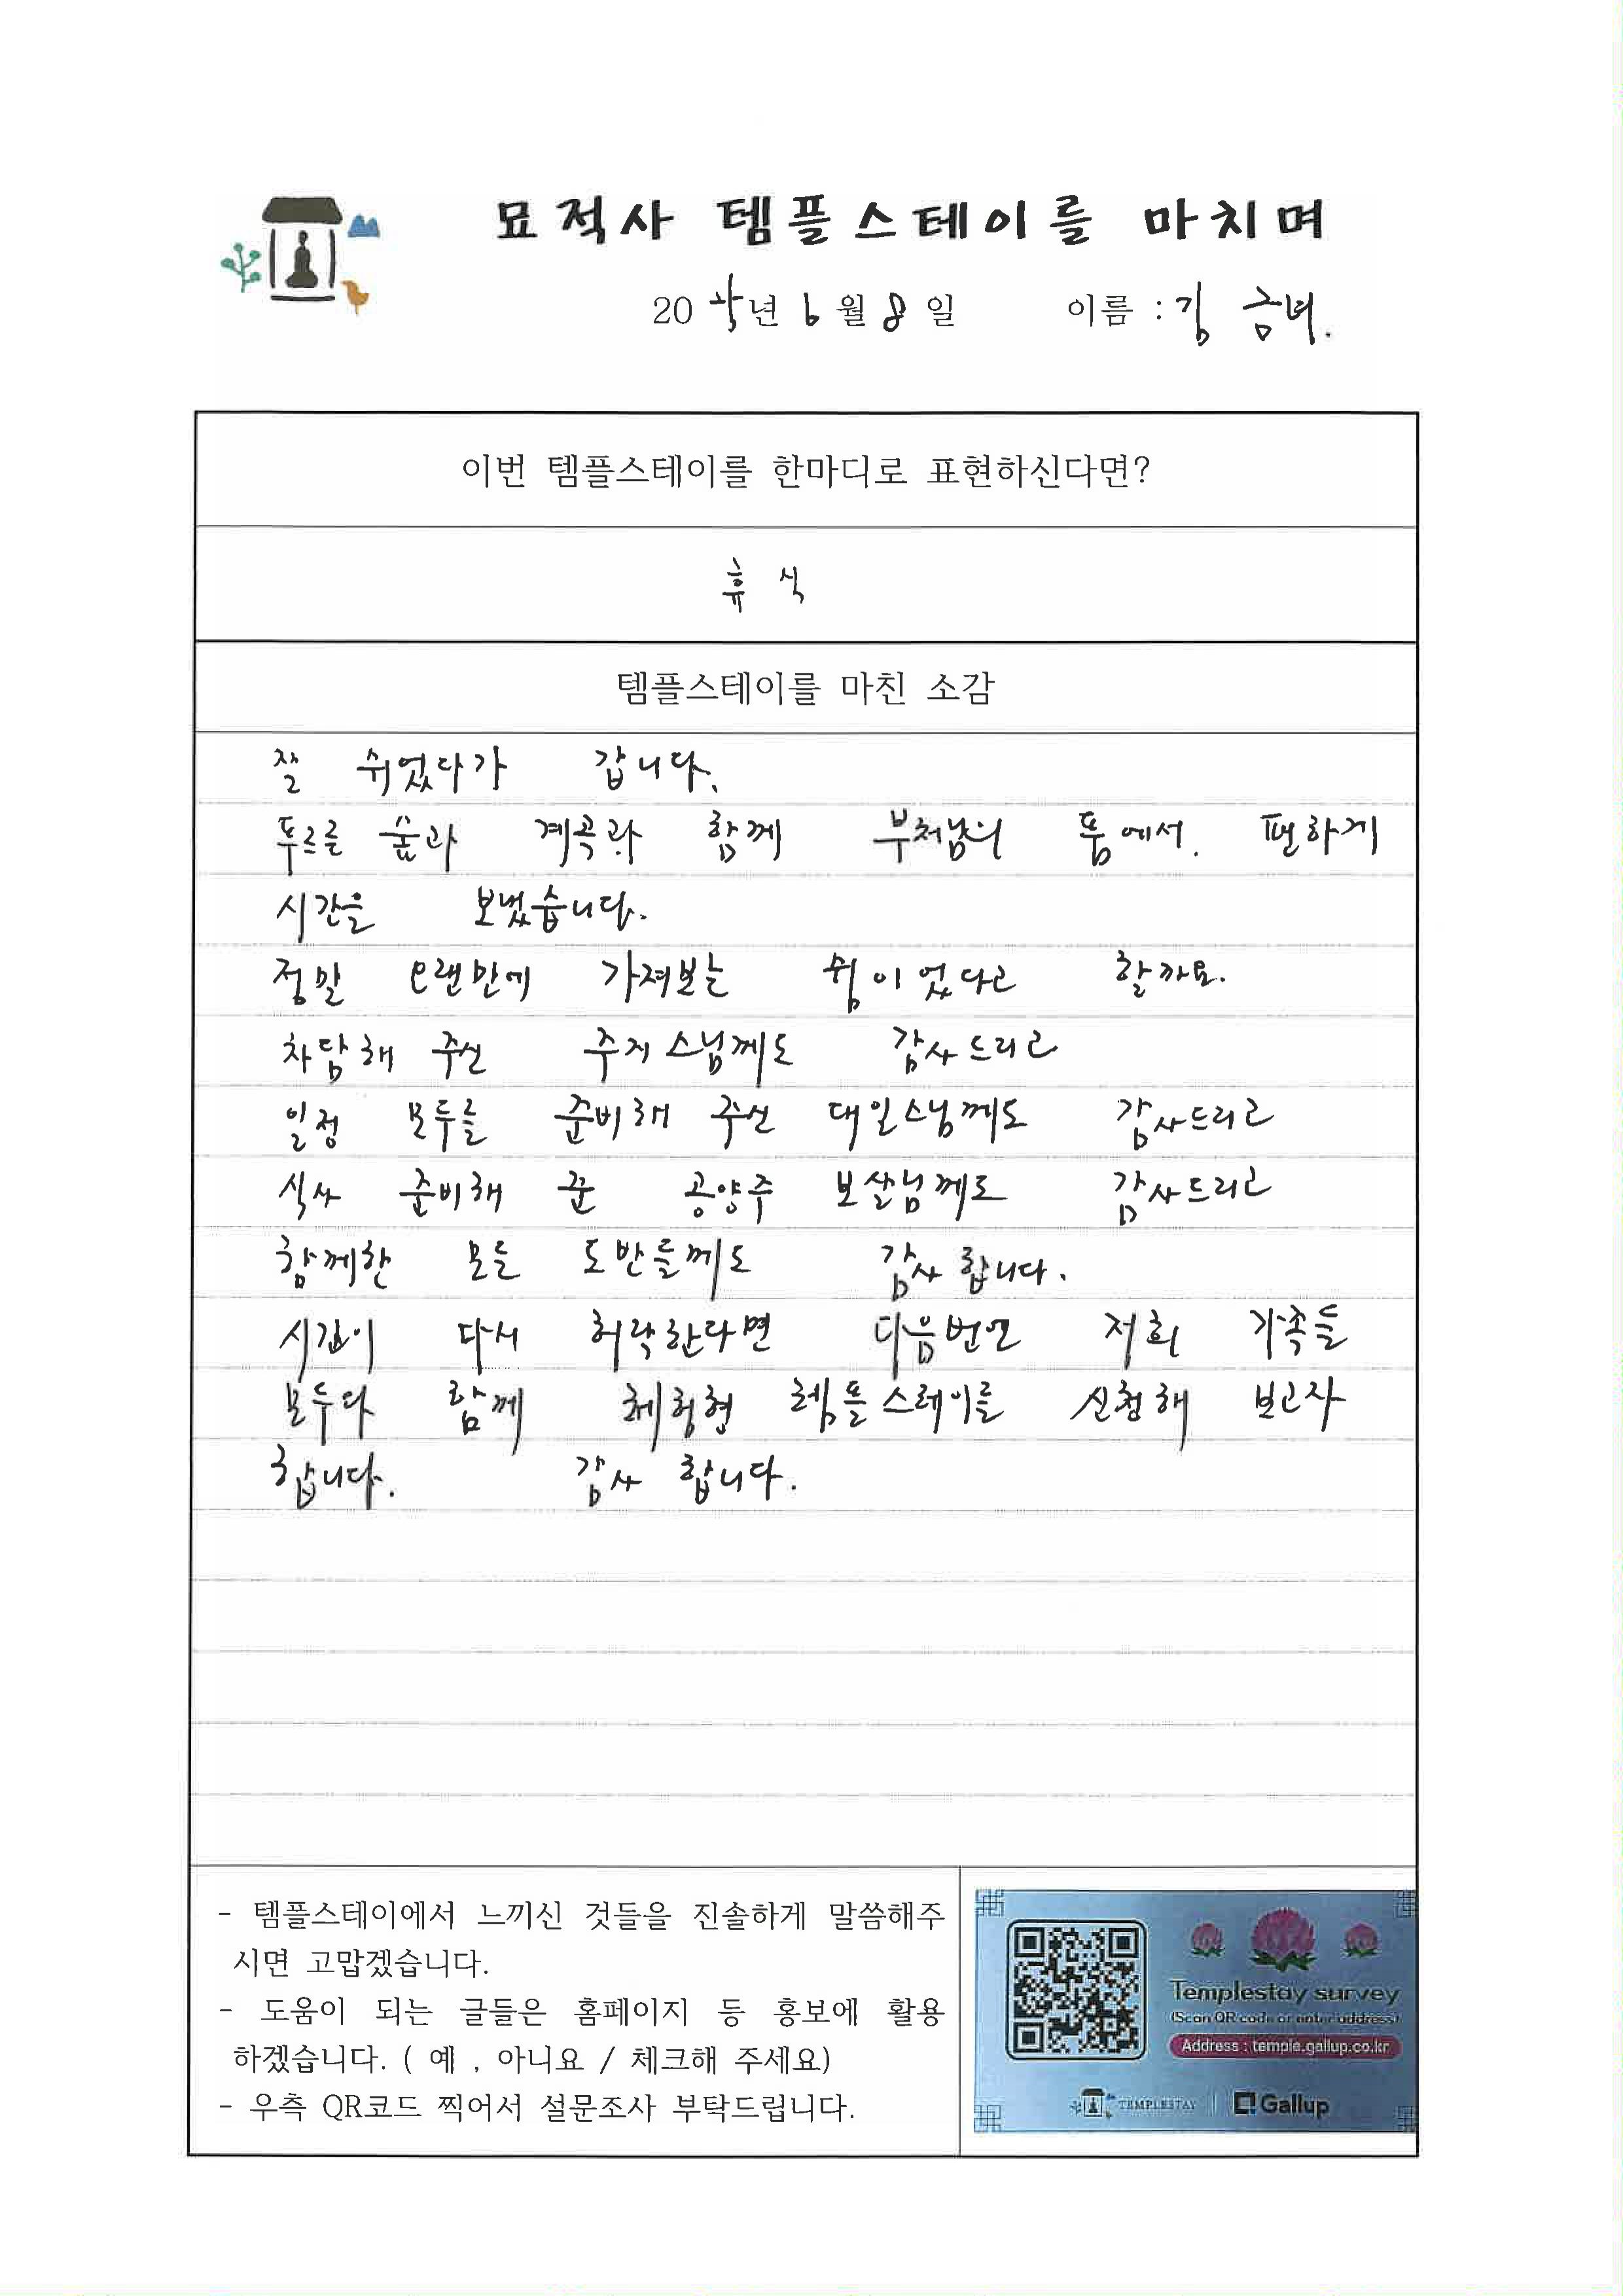 묘적사 템플스테이를 마치며
20 년 6월 8일 이름 : 김금녀.
이번 템플스테이를 한마디로 표현하신다면?
휴식
템플스테이를 마친 소감
잘 쉬었다가 갑니다.
푸르른 숲과 계곡과 함께 부처님의 품에서. 편하게
시간을 보냈습니다.
정말 오랜만에 가져보는 쉼이었다고 할까요.
차담해 주신 주지스님께도 감사드리고
일정 모두를 준비해 주신 대일스님께도 감사드리고
식사 준비해 준 공양주 보살님께도 감사드리고
함께한 모든 도반들께도 감사합니다.
시간이 다시 허락한다면 다음번엔 저희 가족들
모두다 함께 체험형 템플스테이를 신청해 보고자
합니다. 감사합니다.
- 템플스테이에서 느끼신 것들을 진솔하게 말씀해주
시면 고맙겠습니다.
- 도움이 되는 글들은 홈페이지 등 홍보에 활용
하겠습니다. ( 예 , 아니요 / 체크해 주세요)
- 우측 QR코드 찍어서 설문조사 부탁드립니다.
Templestay survey
(Scan QR code or enter address)
Address : temple.gallup.co.kr
TEMPLESTAY Gallup